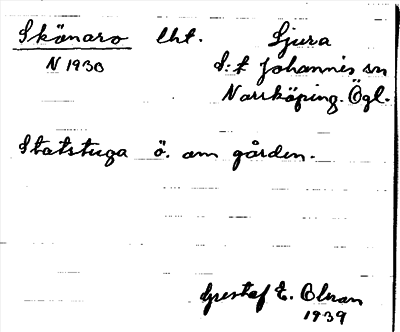 Skönaro lht. Ljura
N 1930 S:t Johannis sn
Norrköping. Ögl.
Statstuga ö. om gården.
Gustaf E. Olson
1939